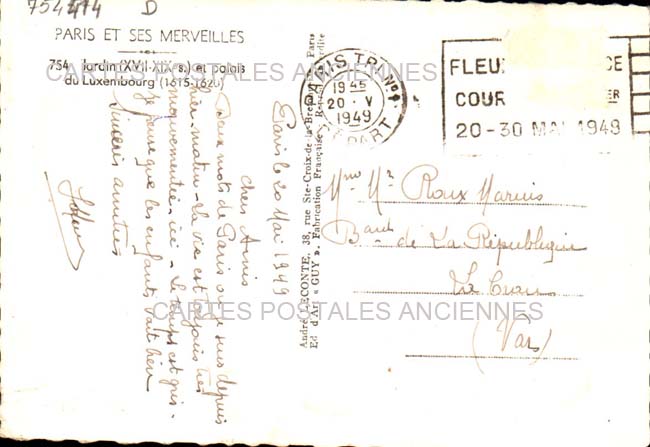 754414 D
PARIS ET SES MERVEILLES
754 - Jardin (XVII-XIXe s.) et palais
du Luxembourg (1615-1620)
Paris le 20 Mai 1949
Chers Amis
Deux mots de Paris où je suis depuis
hier matin - la vie est toujours très
mouvementée ici - Le temps est gris.
Je pense que les enfants vont bien
Sincères amitiés
André LECONTE, 38, rue Ste-Croix-de-la-Bretonnerie, Paris
Ed. d'Art « GUY ». Fabrication Française.
PARIS TRI N°1
1945
20 · V
1949
DEPART
FLEU
COUR
20-30 MAI 1949
Mme Mr Roux Marius
Bard de La République
La Crau
(Var)
CARTES POSTALES ANCIENNES
CARTES POSTALES ANCIENNES